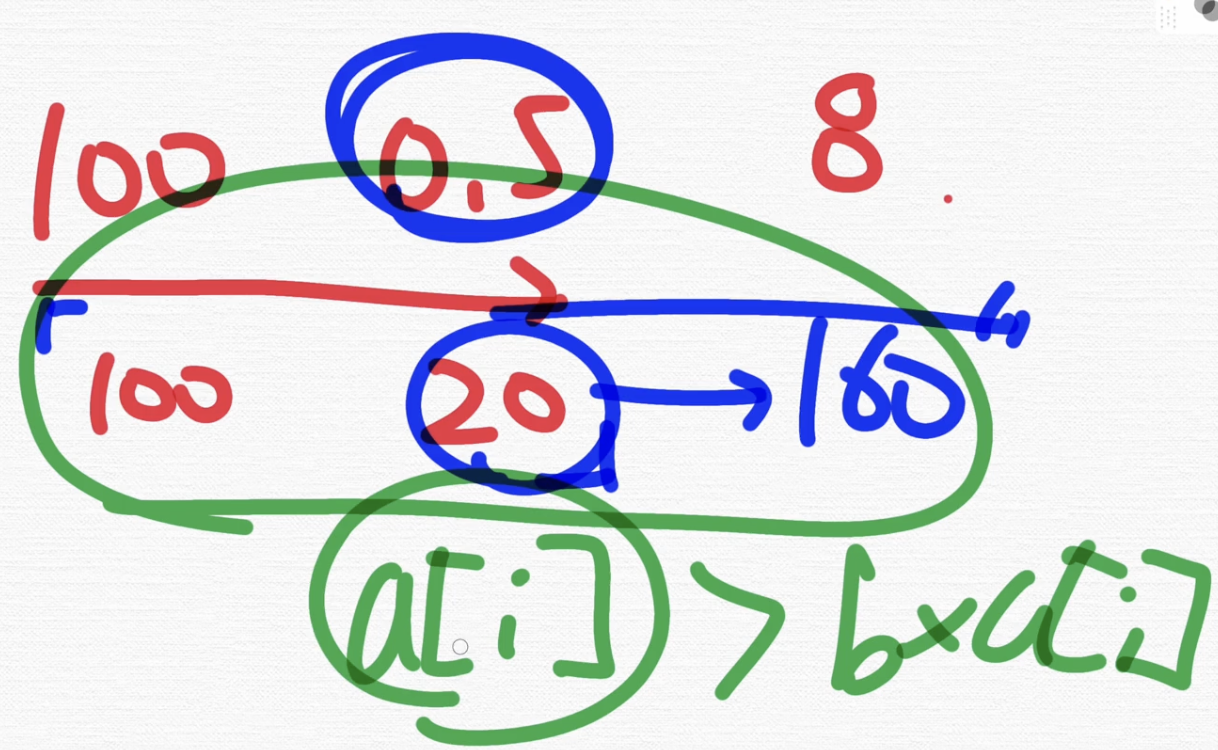 100 0.5 8
100 20 → 160
a[i] > b×a[i]